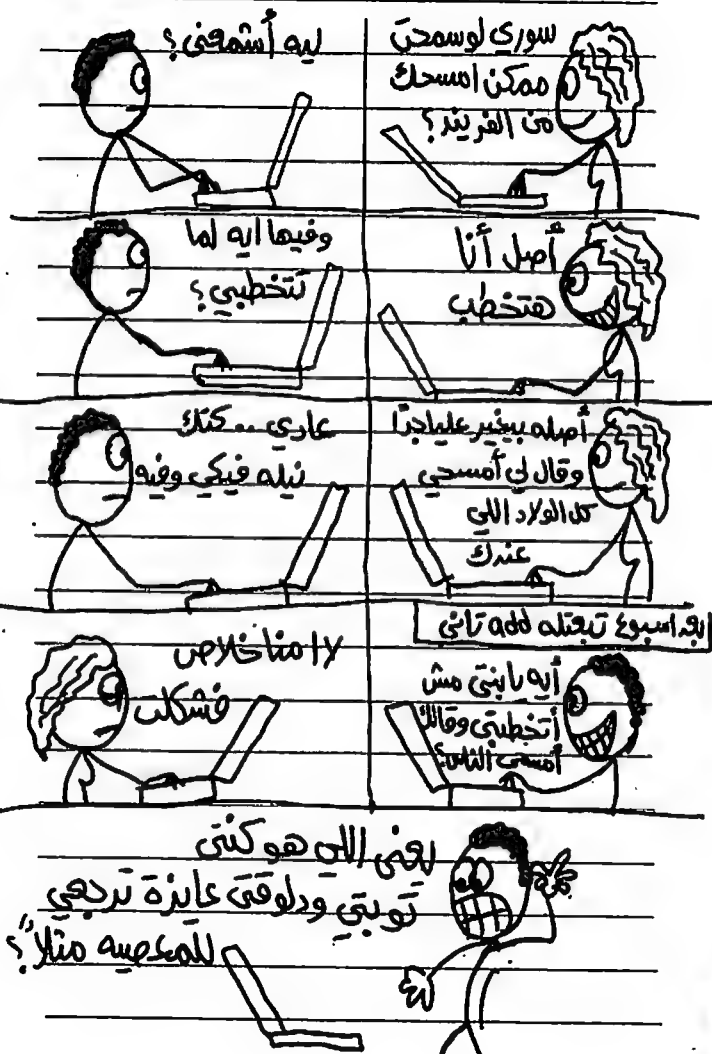 سوري لو سمحتي
ممكن امسحك
من الفريند؟
ليه أشمعنى؟
أصل أنا
هتخطب
وفيها ايه لما
تتخطبي؟
أصله بيغير عليا جدًا
وقال لي أمسحي
كل الولاد اللي
عندك
عادي .. كتك
نيله فيكي وفيه
بعد اسبوع تبعتله add تاني
أيه يابنتي مش
أتخطبتي وقالك
أمسحي الناس؟
لا ا منا خلاص
فشكلت
يعني اللي هو كنتي
توبتي ودلوقتي عايزة ترجعي
للمعصيه مثلاً؟